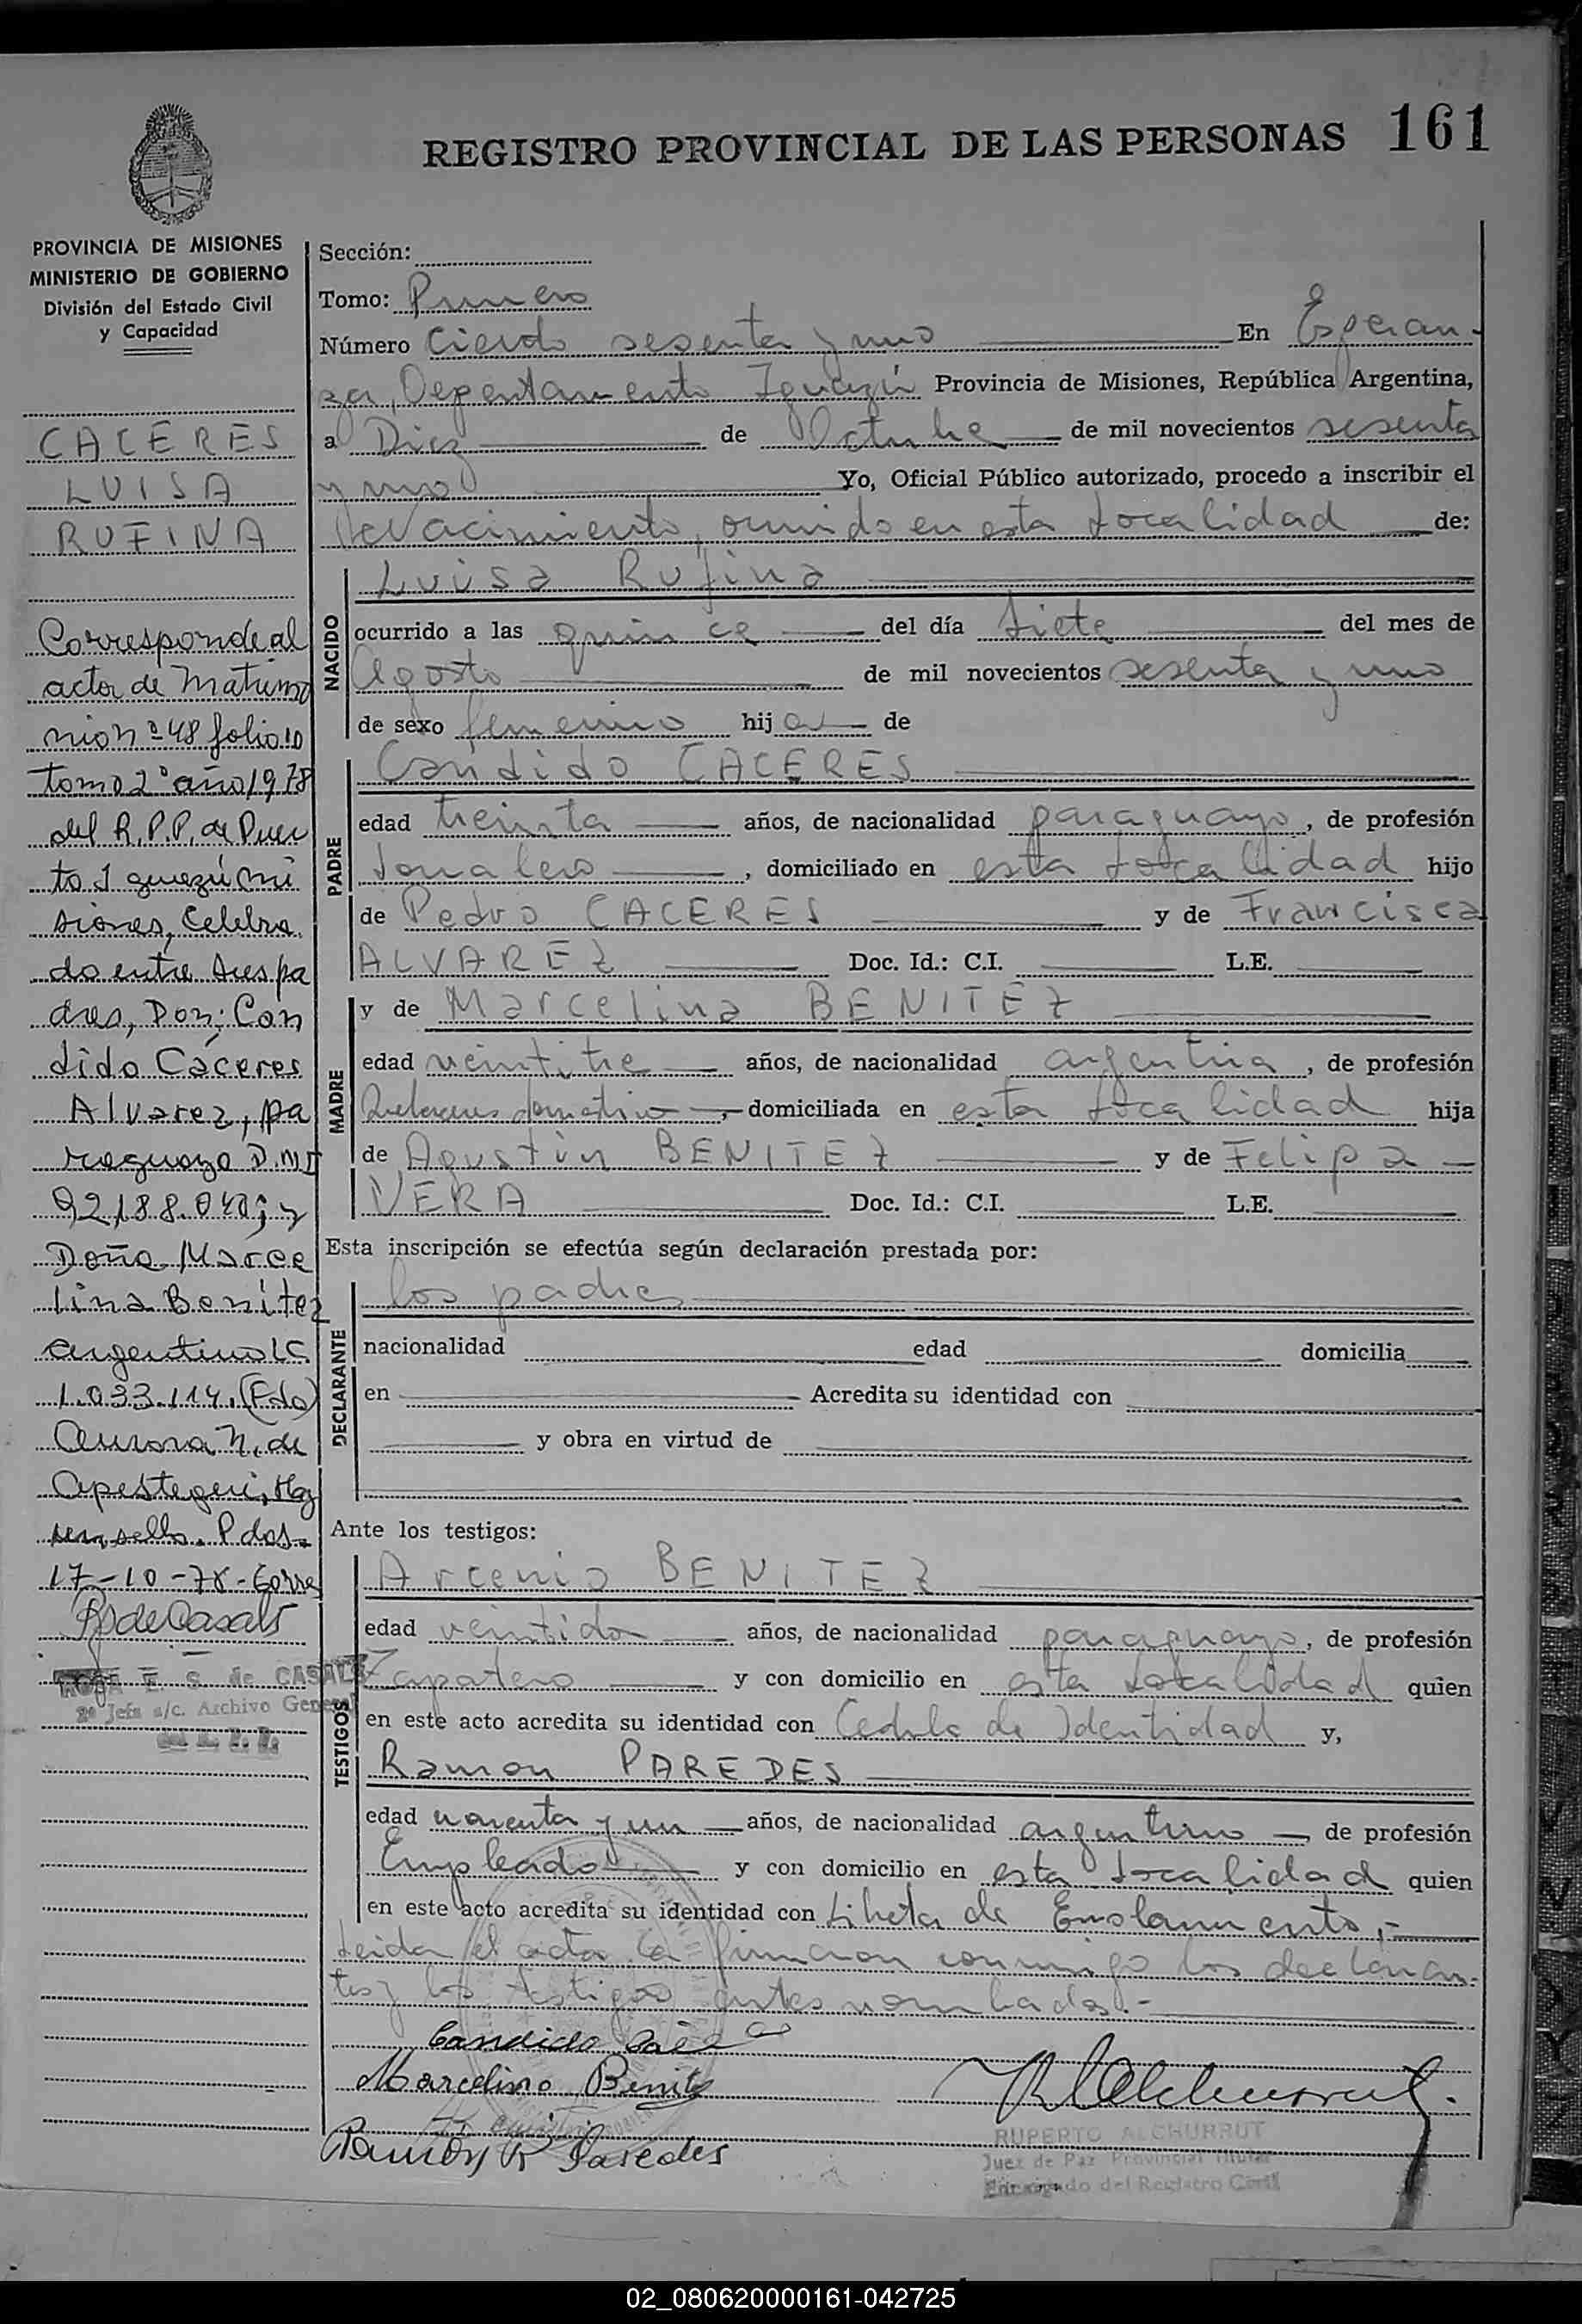 REGISTRO PROVINCIAL DE LAS PERSONAS 161
PROVINCIA DE MISIONES
MINISTERIO DE GOBIERNO
División del Estado Civil
y Capacidad
CACERES
LUISA
RUFINA
Corresponde al
acta de Matrimo
nio nº 48 folio 10
tomo 2º año 1978
del R.P.P. de Puer
to Iguazú Mi
siones, Celebra
do entre sus pa
dres, Don: Can
dido Cáceres
Alvarez, pa
raguayo D.N.I
92188.040; y
Doña Marce
lina Benítez
argentina LC
1.033.114. (Fdo)
Aurora N. de
Apestegui, Hay
un sello. Pdas.
17-10-78-
R de Casals
ROSA E. S. de CASALS
2º Jefe a/c. Archivo General
Sección:
Tomo: Primero
Número Ciento sesenta y uno En Esperan-
za, Departamento Iguazú Provincia de Misiones, República Argentina,
a Diez de Octubre de mil novecientos sesenta
y uno Yo, Oficial Público autorizado, procedo a inscribir el
Nacimiento, ocurrido en esta localidad de:
NACIDO
Luisa Rufina
ocurrido a las quince del día siete del mes de
Agosto de mil novecientos sesenta y uno
de sexo femenino hija de
PADRE
Candido CACERES
edad treinta años, de nacionalidad paraguayo, de profesión
Jornalero, domiciliado en esta localidad hijo
de Pedro CACERES y de Francisca
ALVAREZ Doc. Id.: C.I. L.E.
MADRE
y de Marcelina BENITEZ
edad veintitre años, de nacionalidad argentina, de profesión
Quehaceres domestico, domiciliada en esta localidad hija
de Agustin BENITEZ y de Felipa
VERA Doc. Id.: C.I. L.E.
Esta inscripción se efectúa según declaración prestada por:
DECLARANTE
los padres
nacionalidad edad domicilia
en Acredita su identidad con
y obra en virtud de
Ante los testigos:
TESTIGOS
Arcenio BENITEZ
edad veintidos años, de nacionalidad paraguayo, de profesión
Zapatero y con domicilio en esta localidad quien
en este acto acredita su identidad con Cedula de Identidad y,
Ramon PAREDES
edad y un años, de nacionalidad argentino, de profesión
Empleado y con domicilio en esta localidad quien
en este acto acredita su identidad con Libreta de Enrolamiento.-
Leida el acta la firmaron conmigo los declaran-
tes y los testigos antes nombrados.-
Candido
Marcelina Benitez
Ramón R Paredes
RUPERTO ALCHURRUT
Juez de Paz Provincial Titular
Encargado del Registro Civil
02_080620000161-042725